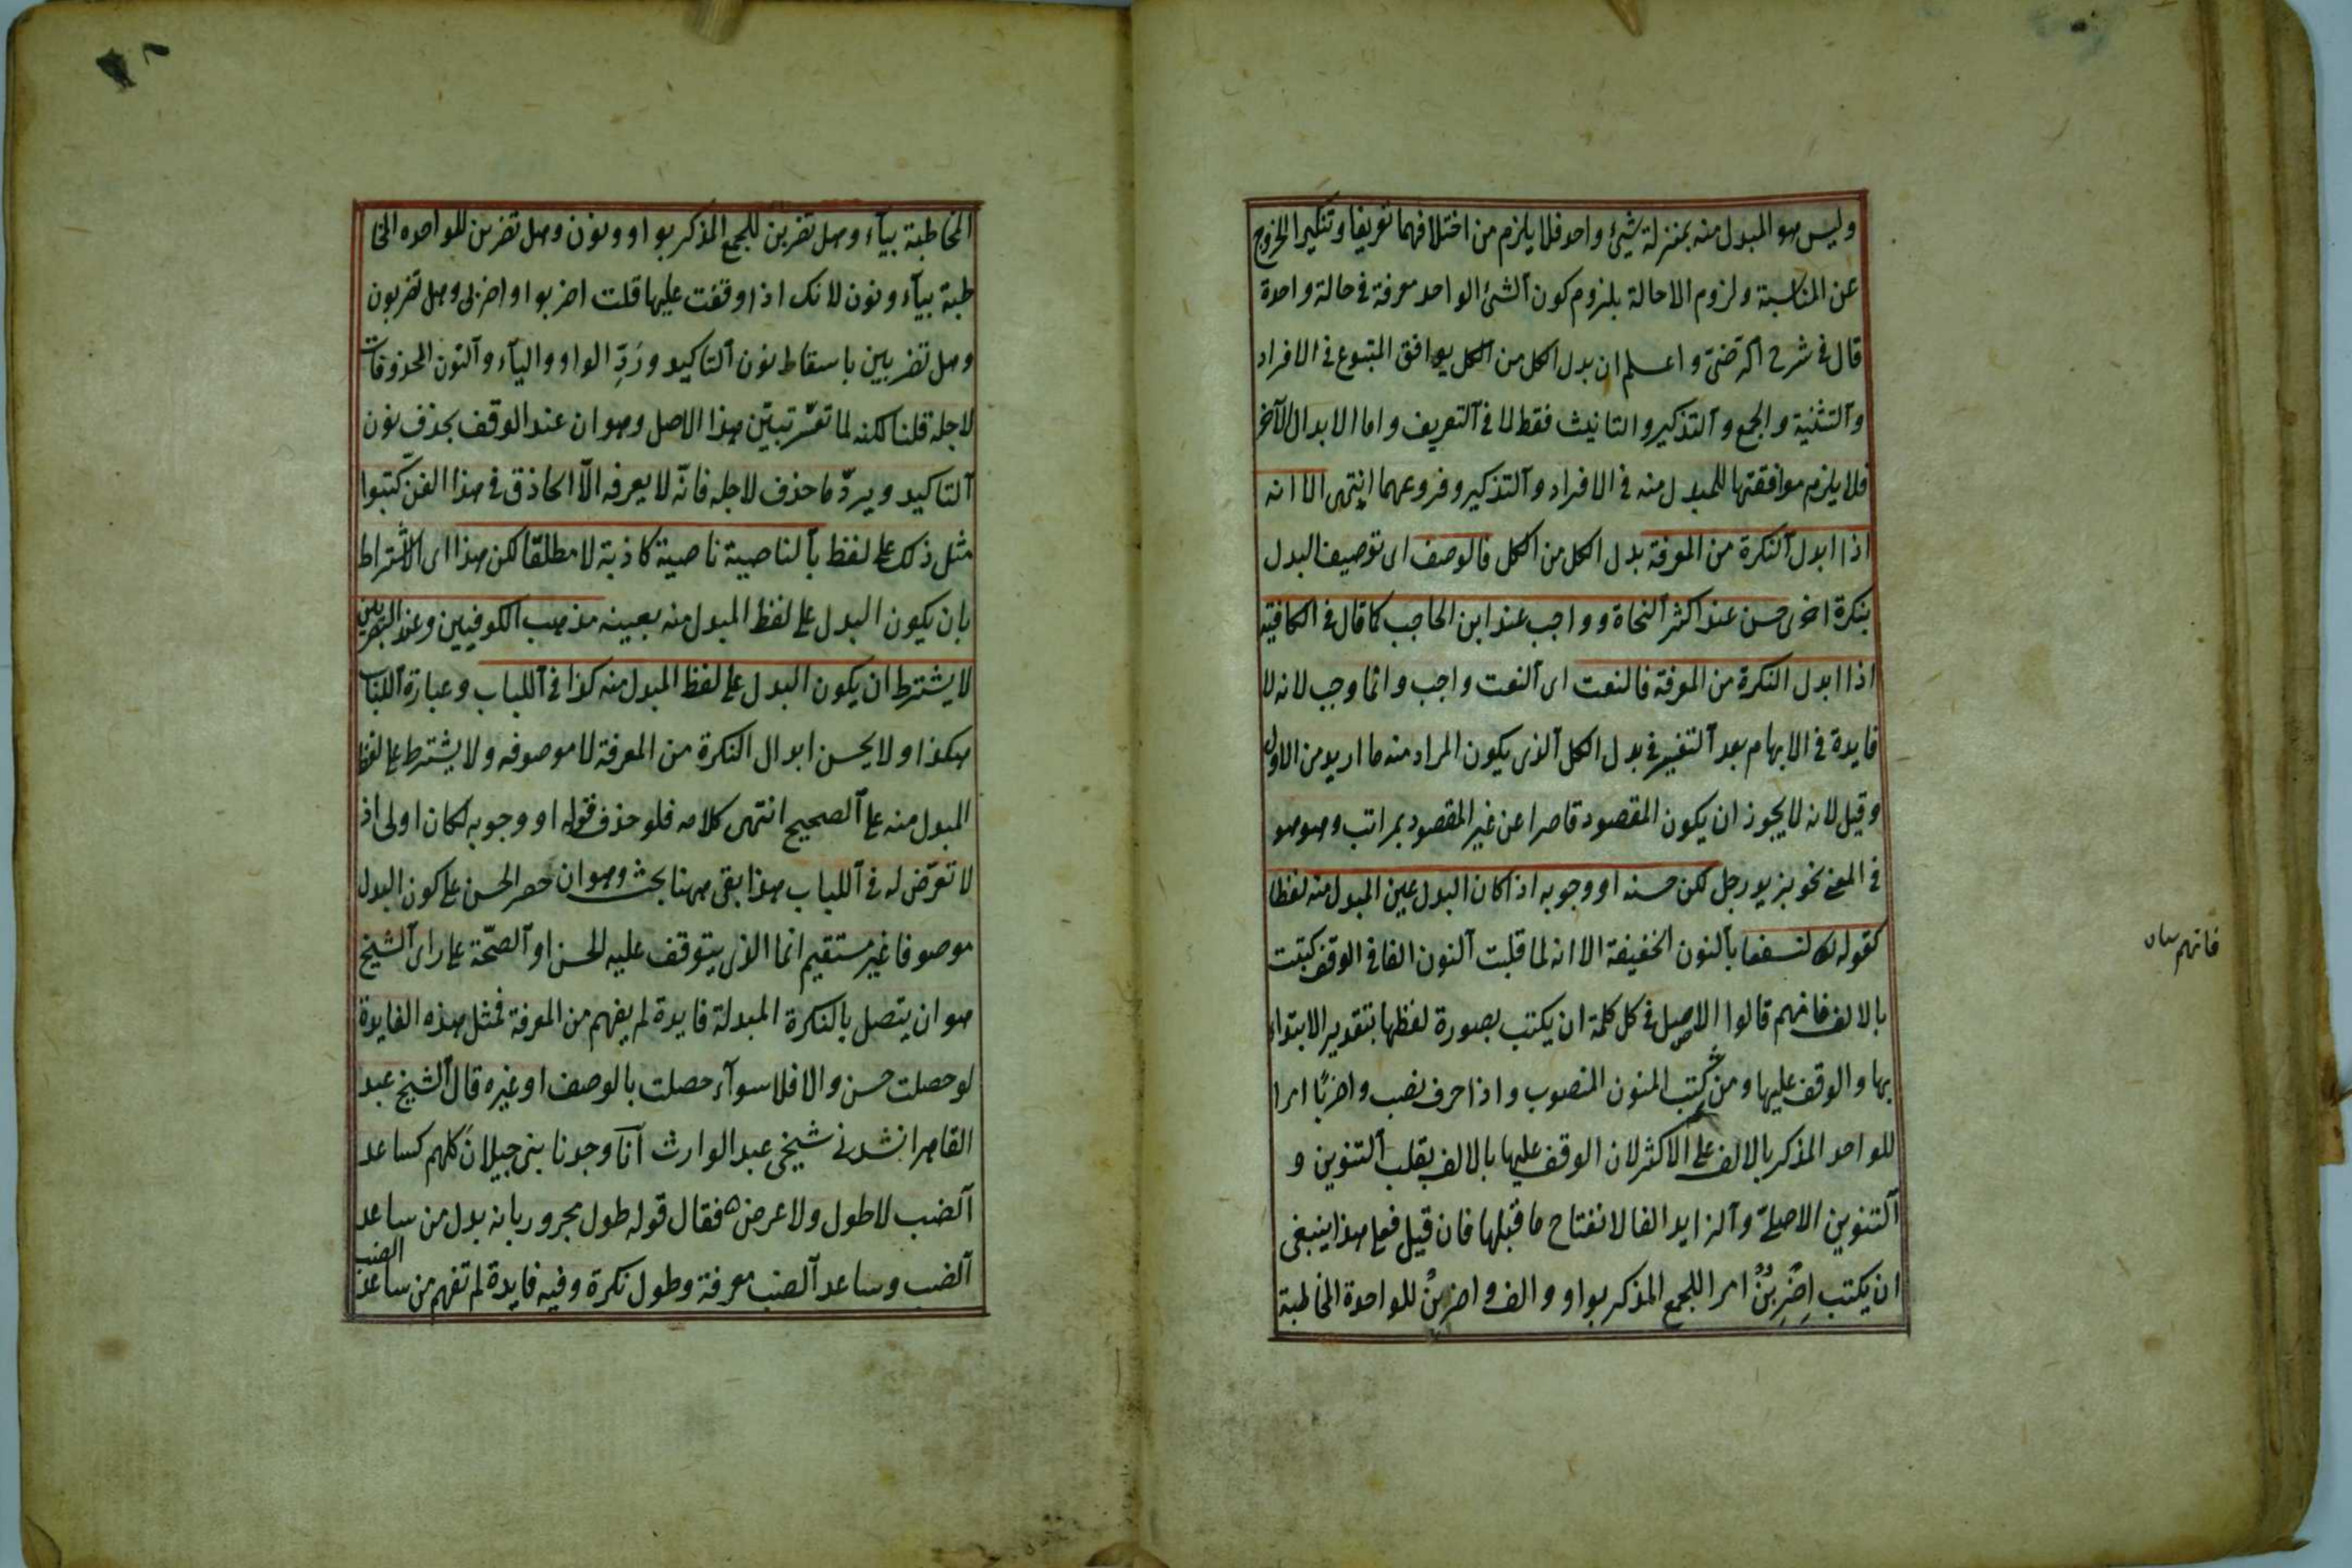 وليس هو المبدل منه بمنزلة شيئ واحد فلا يلزم من اختلافهما تعريفا وتنكيرا الخروج
عن المناسبة ولزوم الاحالة بلزوم كون الشئ الواحد معرفة في حالة واحدة
قال في شرح الرضى واعلم ان بدل الكل من الكل يوافق المتبوع في الافراد
والتثنية والجمع والتذكير والتانيث فقط لا في التعريف واما الابدال الآخر
فلا يلزم موافقتها للمبدل منه في الافراد والتذكير وفروعهما انتهى الا انه
اذا ابدل النكرة من المعرفة بدل الكل من الكل فالوصف اى توصيف البدل
بنكرة اخرى حسن عند اكثر النحاة وواجب عند ابن الحاجب كما قال في الكافية
اذا ابدل النكرة من المعرفة فالنعت اى النعت واجب وانما وجب لانه لا
فايدة في الابهام بعد التفسير في بدل الكل الذى يكون المراد منه ما اريد من الاول
وقيل لانه لا يجوز ان يكون المقصود قاصرا عن غير المقصود بمراتب وهو هو
في المعنى نحو بزيد رجل لكن حسنه او وجوبه اذا كان البدل عين المبدل منه لفظا
كقوله لنسفعا بالنون الخفيفة الا انه لما قلبت النون الفا في الوقف كتبت
بالالف فانهم قالوا الاصل في كل كلمة ان يكتب بصورة لفظها بتقدير الابتداء
بها والوقف عليها ومن ثمه كتب المنون المنصوب واذا حرف نصب واضربًا امرا
للواحد المذكر بالالف على الاكثر لان الوقف عليها بالالف بقلب التنوين و
التنوين الاصلى والزايد الفا لانفتاح ما قبلها فان قيل فعلى هذا ينبغى
ان يكتب اِضْرِبُنْ امرا للجمع المذكر بواو والف واضربِنْ للواحدة المخاطبة
فانهم
المخاطبة بيآء وهل تضربن للجمع المذكر بواو ونون وهل تضربن للواحده المخا
طبة بيآء ونون لانك اذا وقفت عليها قلت اضربوا واضربى وهل تضربون
وهل تضربين باسقاط نون التاكيد ورَدِّ الواو والياء والنون المحذوفات
لاجله قلنا لكنه لما تعسّر تبيّن هذا الاصل وهو ان عند الوقف بحذف نون
التاكيد ويردّ ما حذف لاجله فانّه لا يعرفه الّا الحاذق في هذا الفنّ كتبوا
مثل ذلك على لفظ بالناصية ناصية كاذبة لا مطلقا لكن هذا اى الاشتراط
بان يكون البدل على لفظ المبدل منه بعينه مذهب الكوفيين وعند البصريين
لا يشترط ان يكون البدل على لفظ المبدل منه كذا في اللباب وعبارة اللباب
هكذا ولا يحسن ابدال النكرة من المعرفة لا موصوفه ولا يشترط على لفظ
المبدل منه على الصحيح انتهى كلامه فلو حذف قوله او وجوبه لكان اولى اذ
لا تعرّض له في اللباب هذا بقى ههنا بحث وهو ان حصر الحسن على كون البدل
موصوفا غير مستقيم انما الذى يتوقف عليه الحسن او الصحّة على راى الشيخ
هو ان يتصل بالنكرة المبدلة فايدة لم يفهم من المعرفة فمثل هذه الفايدة
لو حصلت حسن والا فلا سوآء حصلت بالوصف او غيره قال الشيخ عبد
القاهر انشدنى شيخى عبد الوارث انّا وجدنا بنى جيلانَ كلهم كساعد
الضب لا طول ولا عرض ه فقال قوله طول مجرور بانه بدل من ساعد
الضب وساعد الضب معرفة وطول نكرة وفيه فايدة لم تفهم من ساعد الضب